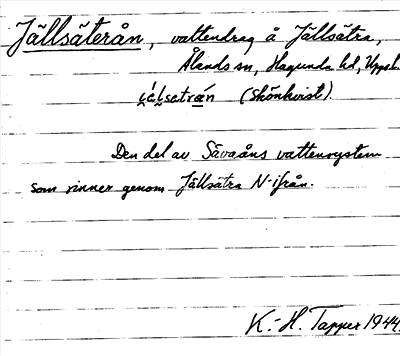 Jällsäterån, vattendrag å Jällsätra,
Ålands sn, Hagunda hd, Uppsl.
(Skönkvist).
Den del av Sävaåns vattensystem
som rinner genom Jällsätra N-ifrån.
K.-H. Tapper 1944.